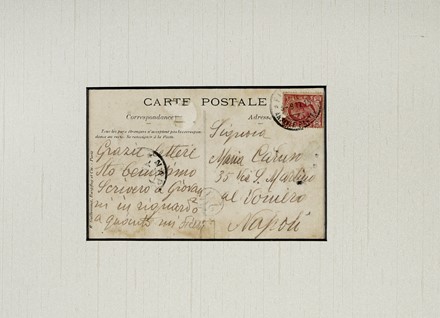 CARTE POSTALE
Correspondance
Adresse
Tous les pays étrangers n'acceptent pas la correspondance
au verso. Se renseigner à la Poste
Grazie lettere
Sto benissimo
Scriverò a Giovan
ni in riguardo
a quanto mi
Signora
Maria
35 Via S. Martino
al Vomero
Napoli